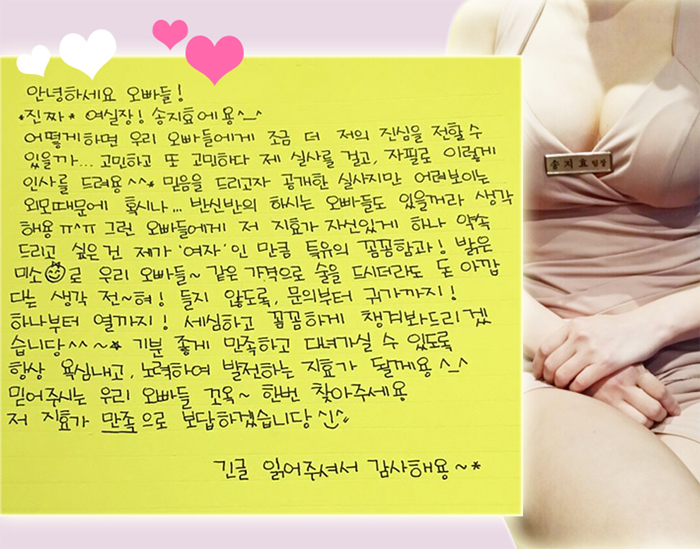 안녕하세요 오빠들!
*진짜* 여실장! 송지효에용^_^
어떻게하면 우리 오빠들에게 조금 더 저의 진심을 전할수
있을까... 고민하고 또 고민하다 제 실사를 걸고, 자필로 이렇게
인사를 드려용^^* 믿음을 드리고자 공개한 실사지만 어려보이는
외모때문에 혹시나... 반신반의 하시는 오빠들도 있을꺼라 생각
해용 ㅠ^ㅠ 그런 오빠들에게 저 지효가 자신있게 하나 약속
드리고 싶은건 제가 '여자'인 만큼 특유의 꼼꼼함과! 밝은
미소로 우리 오빠들~ 같은 가격으로 술을 드시더라도 돈 아깝
다는 생각 전~혀! 들지 않도록, 문의부터 귀가까지!
하나부터 열까지! 세심하고 꼼꼼하게 챙겨봐드리겠
습니당^^~* 기분 좋게 만족하고 다녀가실 수 있도록
항상 욕심내고, 노력하여 발전하는 지효가 될께용^_^
믿어주시는 우리 오빠들 꼬옥~ 한번 찾아주세용
저 지효가 만족으로 보답하겠습니당
긴글 읽어주셔서 감사해용~*
송지효 팀장